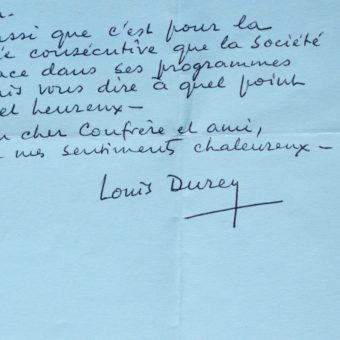 ssi que c'est pour la
e consécutive que la Société
ace dans ses programmes
is vous dire à quel point
et heureux –
cher Confrère et ami,
mes sentiments chaleureux –
Louis Durey